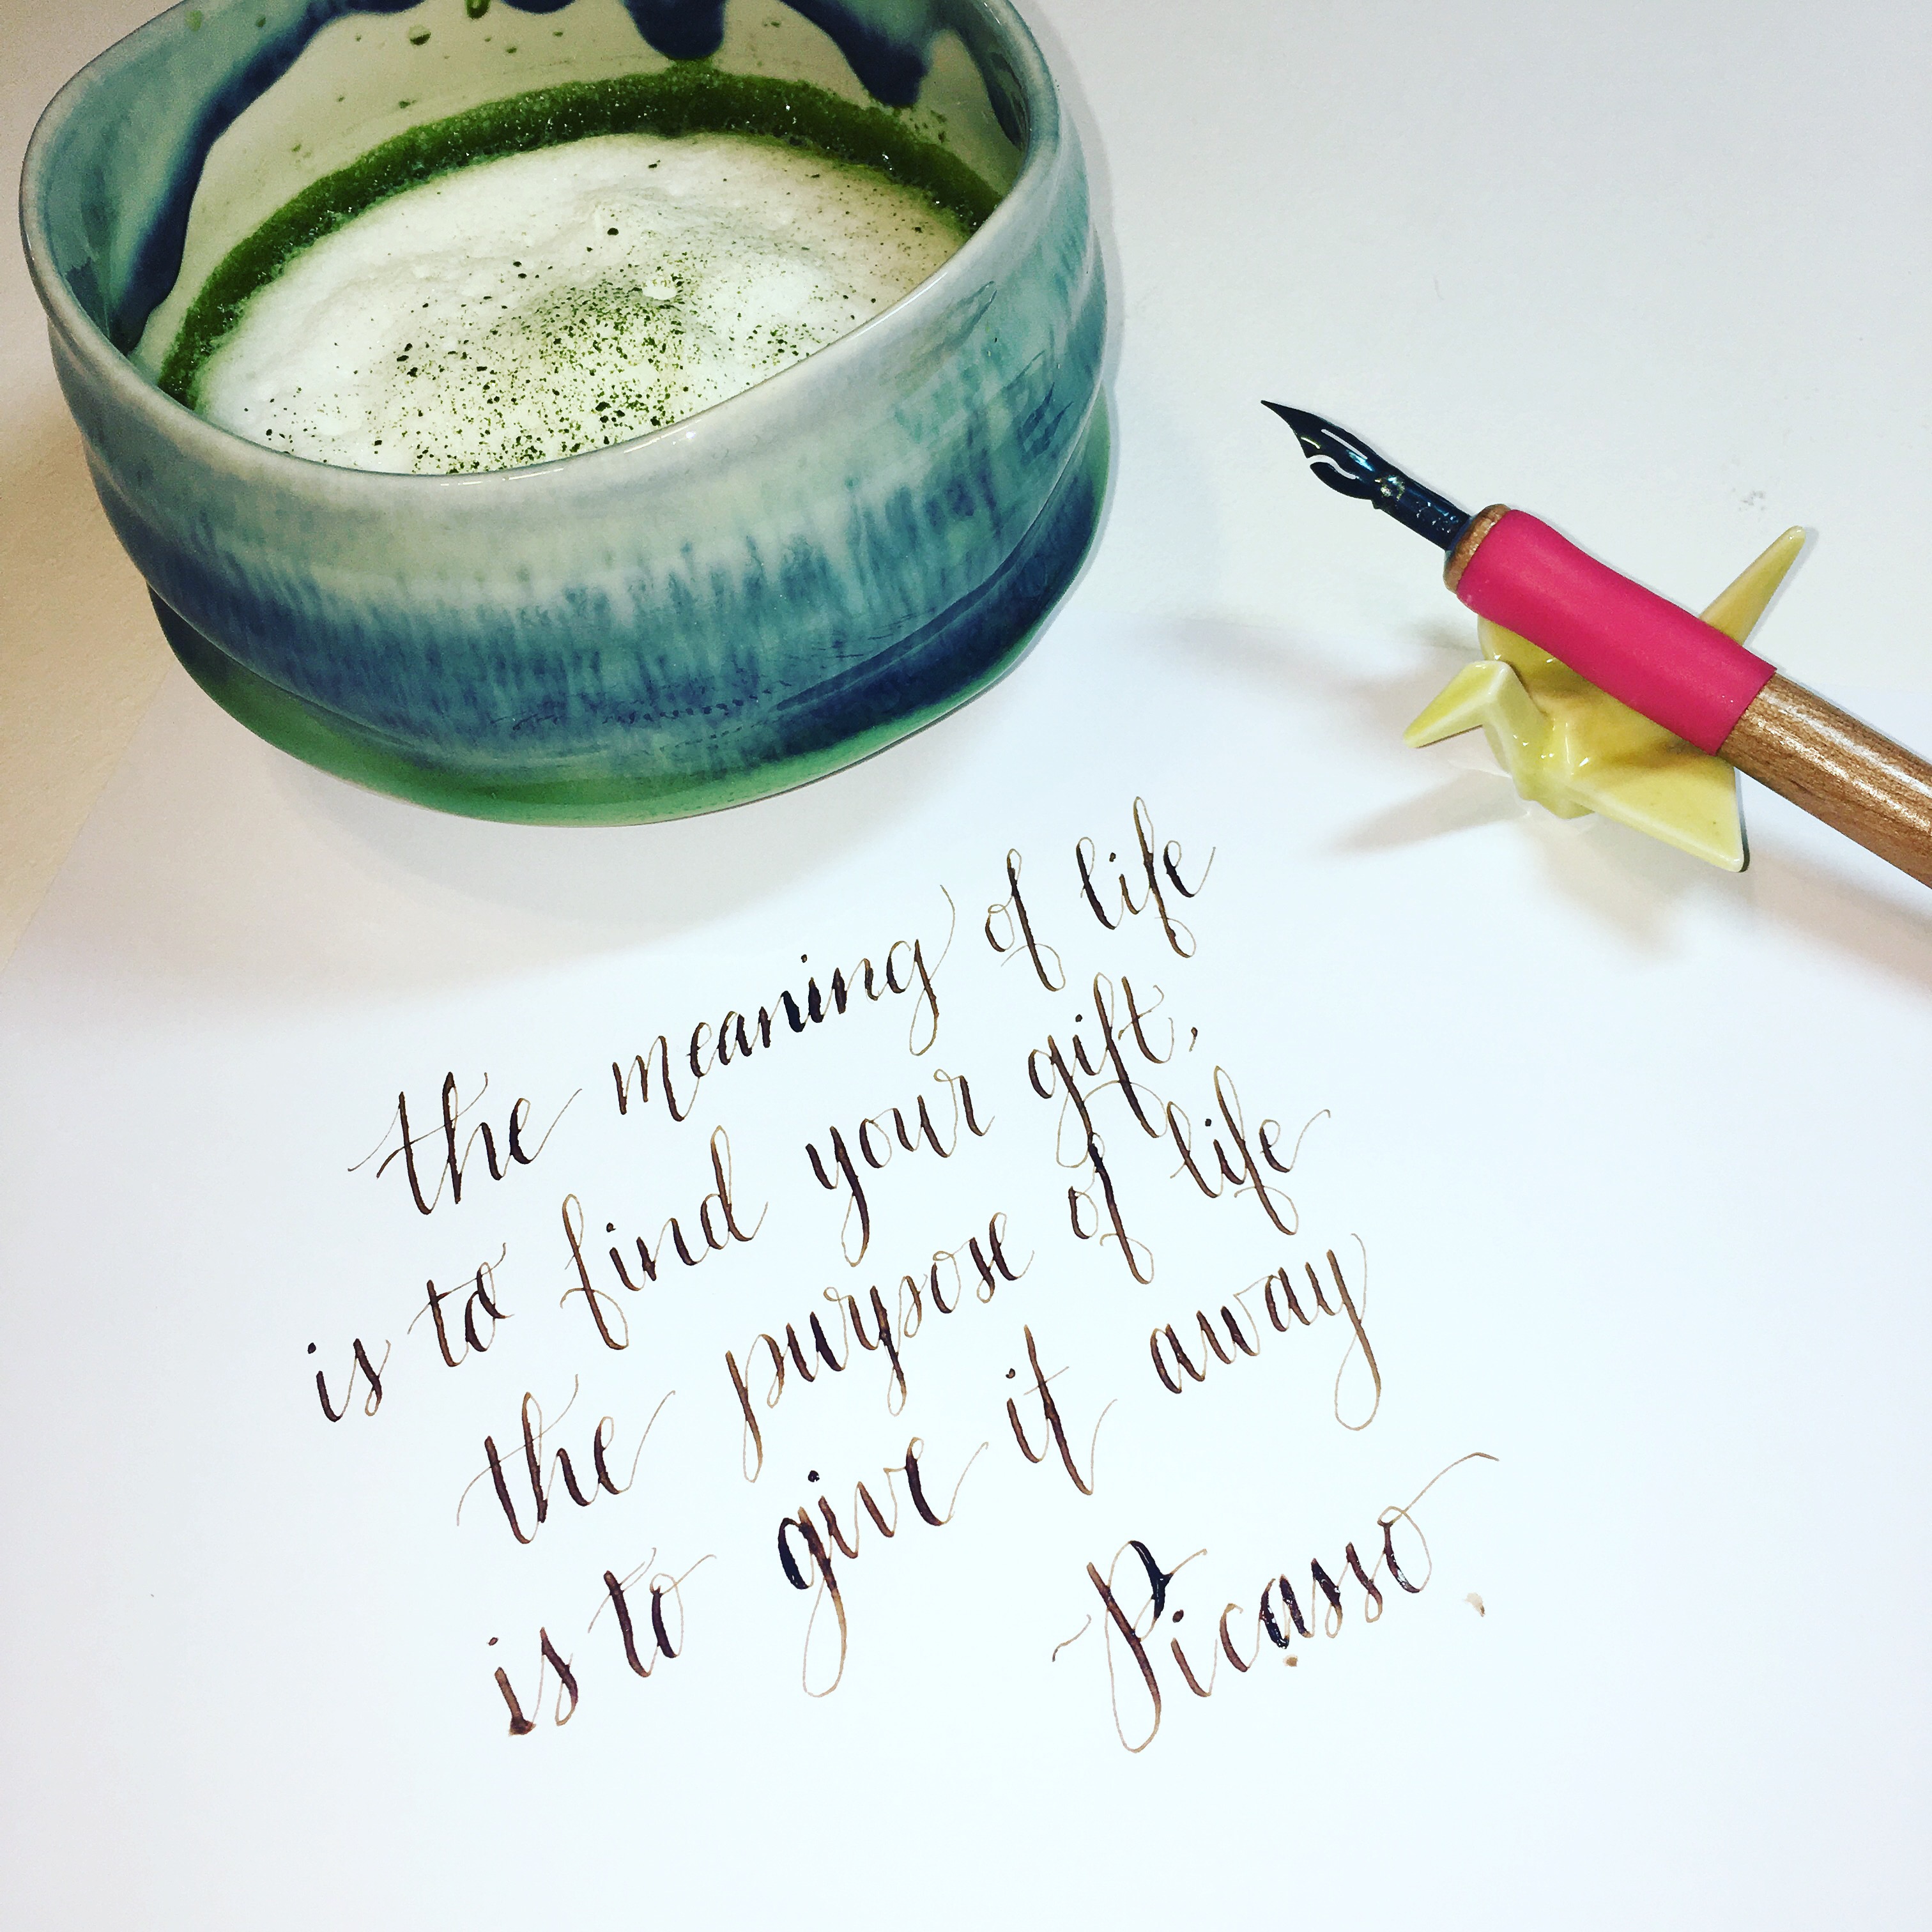 the meaning of life
is to find your gift,
the purpose of life
is to give it away
Picasso